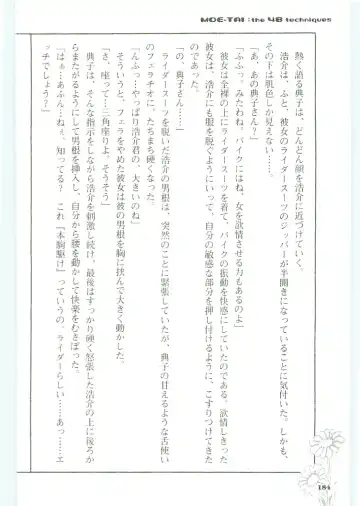 MOE-TAI : the 48 techniques
熱く語る典子は、どんどん顔を浩介に近づけていく。
浩介は、ふと、彼女のライダースーツのジッパーが半開きになっていることに気付いた。しかも、
その下は肌色しか見えない……。
「あ、あの典子さん?」
「ふふっ。みたわね。バイクにはね、女を欲情させる力もあるのよ」
彼女は全裸の上にライダースーツを着て、バイクの振動を快感にしていたのである。欲情しきった
彼女は、浩介にも服を脱ぐようにいって、自分の敏感な部分を押し付けるように、こすりつけてきた
のであった。
「の、典子さん……」
ライダースーツを脱いだ浩介の男根は、突然のことに緊張していたが、典子の甘えるような舌使い
のフェラチオに、たちまち硬くなった。
「んふっ…やっぱり浩介君の、大きいのね」
そういうと、フェラをやめた彼女は彼の男根を胸に挟んで大きく動かした。
「さ、座って…三角座りよ、そうそう」
典子は、そんな指示をしながら浩介を刺激し続け、最後はすっかり硬く怒張した浩介の上に後ろか
らまたがるようにして男根を挿入し、自分から腰を動かして快楽をむさぼった。
「はぁ…あふん…ねぇ、知ってる? これ『本駒駆け』っていうの、ライダーらしい……あっ……エ
ッチでしょう?」
184